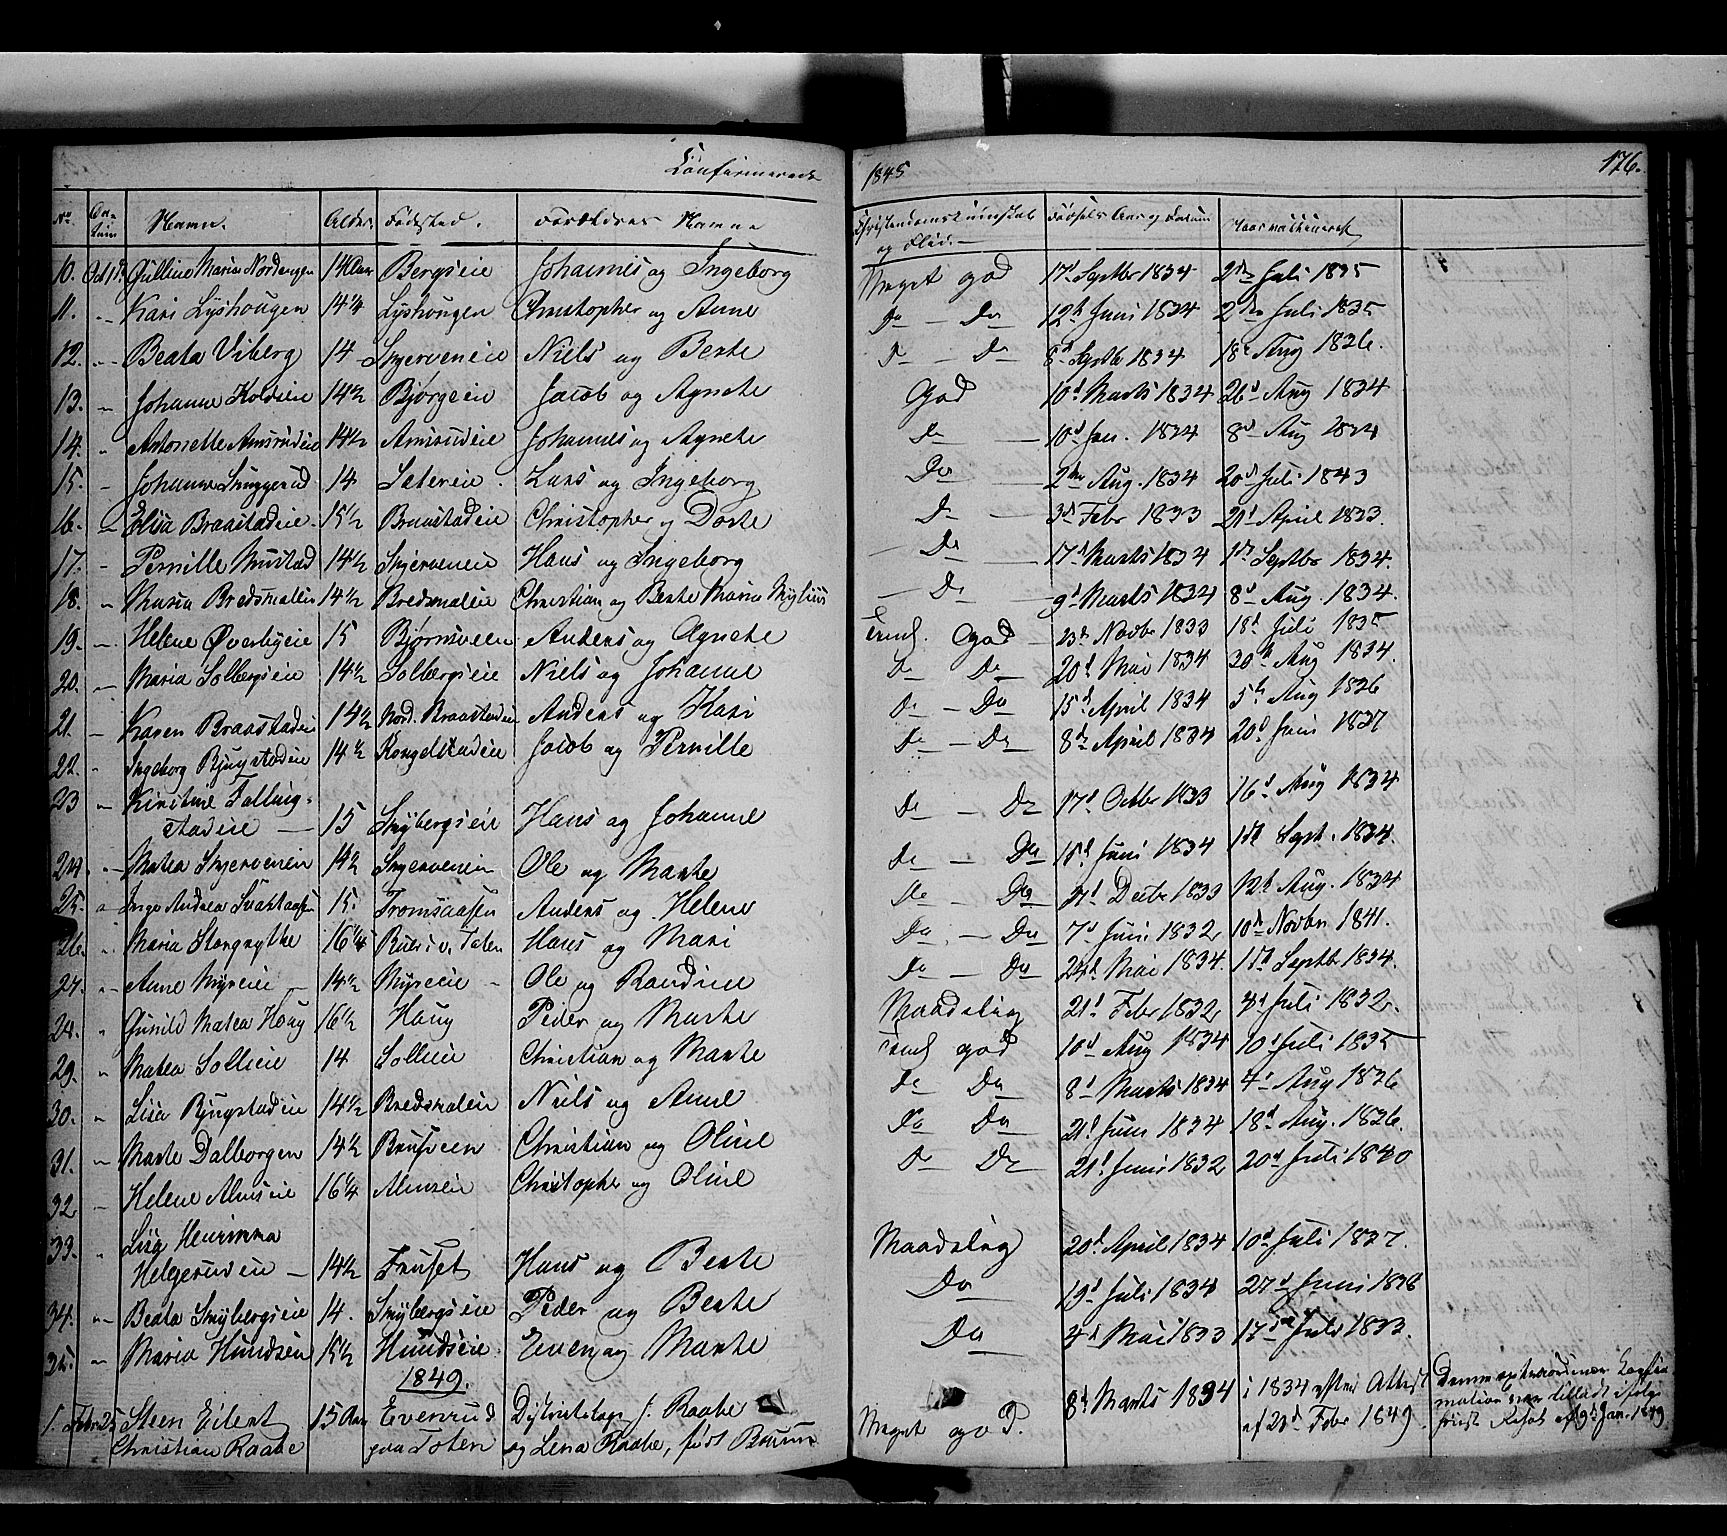 Confirmerede 1845 176.
No Datum Navn. Alder. Fødested. Forældres Navne Christendomskundskab og Flid. Fødsels Aar og Datum Naar vaccineret
10. Oct 1ste Gulline Maria Nordengen 14 Aar Bergseie Johannes og Ingeborg Meget god 17d Septbr 1834 2den Juli 1835
11. - Kari Lyshougen 14¼ Lyshougen Christopher og Anne Do - Do 12t Juni 1834 2den Juli 1835
12. - Beata Viberg 14 Skjerveneie Niels og Berte Do - Do 8d Septb 1834 18d Aug 1836.
13. - Johanne Koldseie 14½ Bjørgeeie Jacob og Agnethe God 10d Marts 1834 26d Aug 1834
14. - Antonette Amsrudeie 14½ Amsrudeie Johannes og Agnethe Do 10d Jan. 1834 8d Aug 1834
15. - Johanne Snuggerud 14 Setereie Lars og Ingeborg Do 2den Aug. 1834 20d Juli 1843
16. - Elisa Braastadeie 15½ Braastadeie Christopher og Dorte Do 3d Febr 1833 21d April 1833.
17. - Pernille Mustad 14½ Skjerveneie Hans og Ingeborg Do 17d Marts 1834 1ste Septbr 1834.
18. - Maria Bredsmalen 14½ Bredsmaleie Christian og Berte Maria Mylius Do 9d Marts 1834 8d Aug. 1834.
19. - Helene Øverbyeie 15 Bjørnsveen Anders og Agnethe Temml. God 23d Novbr 1833 18d Juli 1835
20. - Maria Solbergseie 14½ Solbergseie Niels og Johanne Do Do 20d Mai 1834 30d Aug 1834.
21. - Karen Braastadeie 14½ Nord. Braastadeie Anders og Kari Do - Do 15d April 1834 5te Aug 1836
22. - Ingeborg Bjugstadeie 14½ Kongelstadeie Jacob og Pernille Do - Do 8de April 1834 20d Juni 1837
23 - Kirstine Falling-
stadeie 15 Smybergseie Hans og Johanne Do - Do 17d Octbr 1833 16d Aug 1834
24. - Matea Skjerveneie 14½ Skjerveneie Ole og Marte Do - Do 15d Juni 1834 1ste Sept. 1834.
25. - Inge Andrea Svartaasen 15. Tromsaasen Anders og Helene Do - Do 31d Decbr 1833 12d Aug. 1834
26. - Maria Stangnythe 16¼ v. Toten Hans og Mari Do - Do 7d Juni 1832 10d Novbr 1841.
27. - Anne Myreie 14½ Myreie Ole og Randine Do - Do 24d Mai 1834. 11te Septb 1834.
24. - Gunild Matea Houg 16½ Houg Peder og Marte Maadelig 21d Febr 1832 4d Juli 1832.
29. - Matea Sollieie 14 Sollieie Christian og Marte Teml god 10d Aug 1834 10d Juli 1835
30. - Lisa Bjugstadeie 14½ Bredsmaleie Niels og Anne Do Do 8d Marts 1834 4d Aug 1836
31. - Marte Dalborgen 14½ Bruseveen Christian og Oline Do Do 21d Juni 1834 18d Aug. 1836.
32 - Helene Almseie 16¼ Almseie Christopher og Oline Do Do 21d Juni 1832 20d Juli 1840
33. - Lisa Henrimma
Helgerudeie 14½ Fruset Hans og Berte Maadelig 20d April 1834 10d Juli 1837.
34. - Beata Smybergseie 14. Smybergseie Peder og Berte Do 19d Juli 1834 27d Juni 1836
35. - Maria Hundseie 15½ Hundseie Even og Marte Do 4d Mai 1833 17d Juli 1833.
1849.
1. Febr 25 Steen Eilert 15 Aar Evenrud Distriktslæge J. Raabe 8d Marts 1834 i 1834 efter Attest Denne extraordinær Confir
Christian Raabe paa Toten og Lena Raabe, født Meget god. af 20d Febr 1849. mation var tilladt ifølge
Resol. af 9d Jan. 1849.